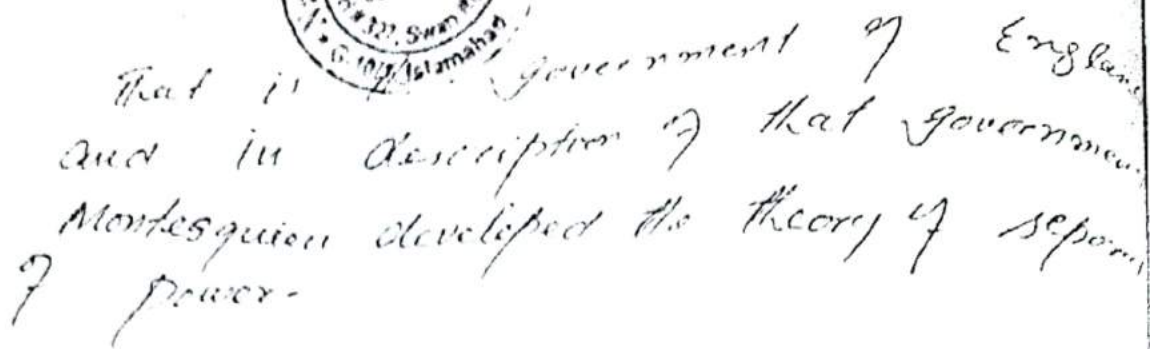 # 327, Swan
G-10/1, Islamabad
That is government of Englan
and in description of that governmen
Montesquieu developed the theory of separa
of power-